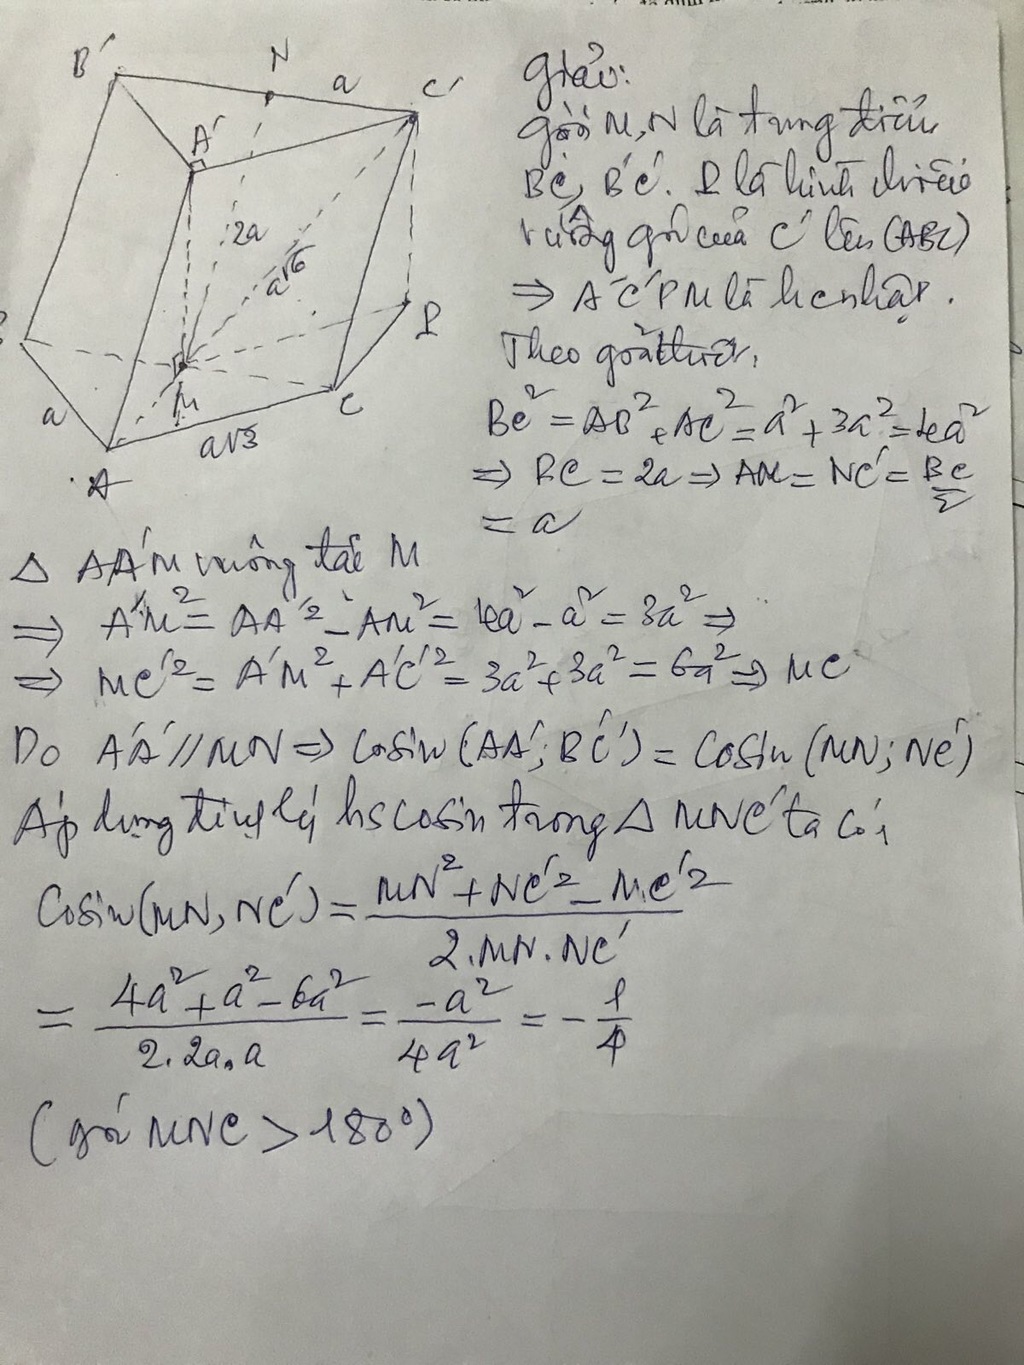 B'
N
a
C'
A'
2a
a√6
P
M
C
a
a√3
A
Giải:
Gọi M, N là trung điểm
BC, B'C'. P là hình chiếu
vuông góc của C' lên (ABC)
⇒ A'C'PM là hcnhật.
Theo giả thiết,
BC² = AB² + AC² = a² + 3a² = 4a²
⇒ BC = 2a ⇒ AM = NC' = BC/2
= a
Δ AA'M vuông tại M
⇒ A'M² = AA'² - AM² = 4a² - a² = 3a² ⇒
⇒ MC'² = A'M² + A'C'² = 3a² + 3a² = 6a² ⇒ MC
Do A'A' // MN ⇒ Cosin (AA'; B'C') = Cosin (MN; NC')
Áp dụng định lý hs cosin trong Δ MNC' ta có,
Cosin (MN, NC') = (MN² + NC'² - MC'²) / (2.MN.NC')
= (4a² + a² - 6a²) / (2.2a.a) = -a² / 4a² = - 1/4
(góc MNC > 180°)